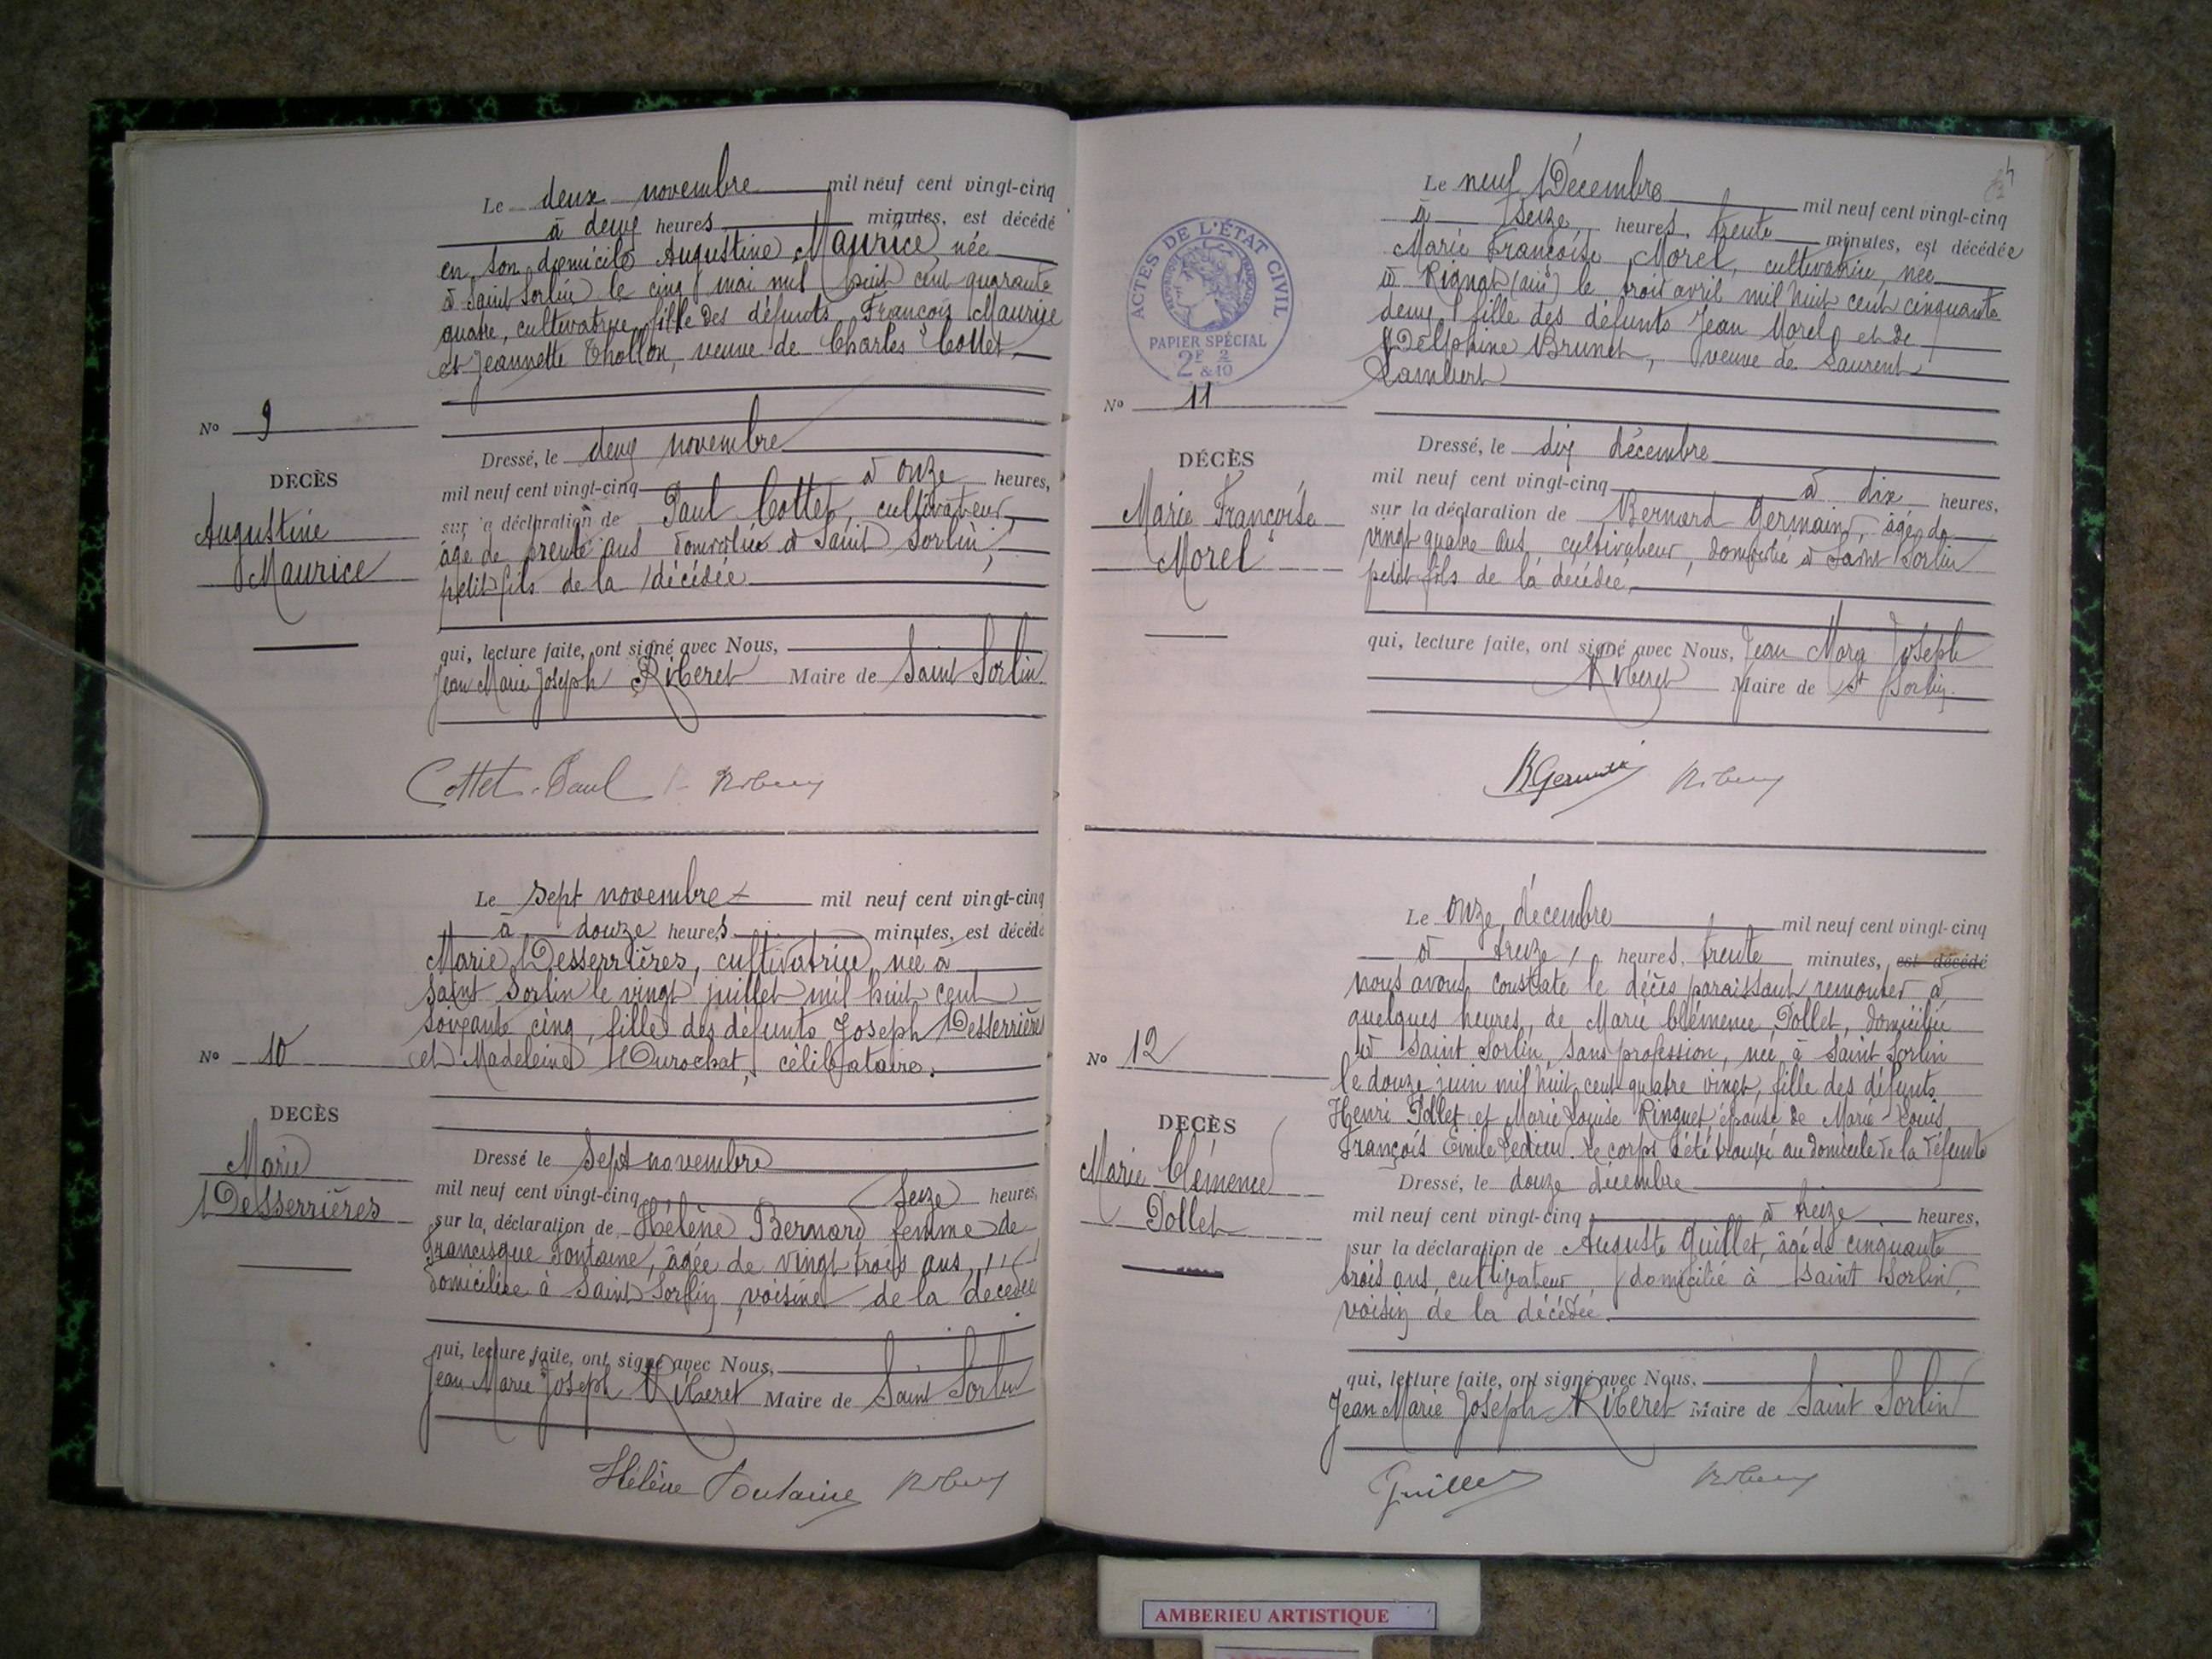 Le deux novembre mil neuf cent vingt-cinq
à deux heures minutes, est décédé
en son domicile Augustine Maurice, née
à Saint Sorlin le cinq mai mil huit cent quarante
quatre, cultivatrice, fille des défunts François Maurice
et Jeannette Thollon, veuve de Charles Cottet,
No 9
DÉCÈS
Augustine
Maurice
Dressé, le deux novembre
mil neuf cent vingt-cinq à onze heures,
sur la déclaration de Paul Cottet, cultivateur,
âgé de trente ans domicilié à Saint Sorlin,
petit fils de la décédée
qui, lecture faite, ont signé avec Nous,
Jean Marie Joseph Riberet Maire de Saint Sorlin
Cottet Paul
Le sept novembre mil neuf cent vingt-cinq
à douze heures minutes, est décédé
Marie Desserrières, cultivatrice, née à
Saint Sorlin le vingt juillet mil huit cent
soixante cinq, fille des défunts Joseph Desserrières
et Madeleine Durochat, célibataire.
No 10
DECÈS
Marie
Desserrières
Dressé le Sept novembre
mil neuf cent vingt-cinq Seize heures,
sur la déclaration de Hélène Bernard femme de
Francisque Fontaine, âgée de vingt trois ans,
domiciliée à Saint Sorlin, voisine de la décédée
qui, lecture faite, ont signé avec Nous,
Jean Marie Joseph Riberet Maire de Saint Sorlin
Hélène Fontaine
Le neuf Décembre mil neuf cent vingt-cinq
à Seize heures, trente minutes, est décédée
Marie Françoise Morel, cultivatrice, née
à Rignat (ain) le trois avril mil huit cent cinquante
deux, fille des défunts Jean Morel et de
Delphine Brunet, veuve de Laurent
Lambert
ACTES DE L'ÉTAT CIVIL
PAPIER SPÉCIAL
2F 2
& 10
No 11
DÉCÈS
Marie Françoise
Morel
Dressé, le dix décembre
mil neuf cent vingt-cinq à dix heures,
sur la déclaration de Bernard Germain, âgé de
vingt quatre ans, cultivateur, domicilié à Saint Sorlin
petit fils de la décédée,
qui, lecture faite, ont signé avec Nous, Jean Marie Joseph
Riberet Maire de St Sorlin.
BGermain
Le onze décembre mil neuf cent vingt-cinq
à treize heures, trente minutes, est décédé
nous avons constaté le décès paraissant remonter à
quelques heures, de Marie Clémence Dollet, domiciliée
à Saint Sorlin, sans profession, née à Saint Sorlin
le douze juin mil huit cent quatre vingt, fille des défunts
Henri Dollet et Marie Louise Ringuet, épouse de Marie Louis
François Emile Dedieu. Le corps a été trouvé au domicile de la défunte
No 12
DECÈS
Marie Clémence
Dollet
Dressé, le douze décembre
mil neuf cent vingt-cinq à treize heures,
sur la déclaration de Auguste Guillet, âgé de cinquante
trois ans, cultivateur, domicilié à Saint Sorlin,
voisin de la décédée.
qui, lecture faite, ont signé avec Nous,
Jean Marie Joseph Riberet Maire de Saint Sorlin
Guillet
AMBERIEU ARTISTIQUE